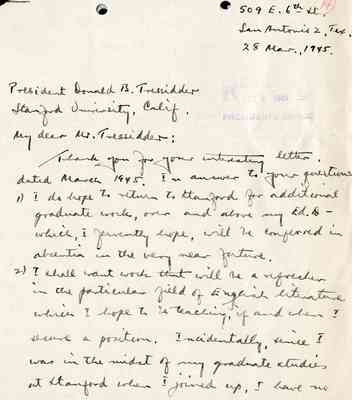 509 E. 6th St.
San Antonio 2, Tex.
28 Mar., 1945.
President Donald B. Tressidder
Stanford University, Calif.
My dear Mr. Tressidder:
Thank you for your interesting letter
dated March 1945. In answer to your questions
1) I do hope to return to Stanford for additional
graduate work, over and above my Ed.D -
which, I fervently hope, will be conferred in
absentia in the very near future.
2) I shall want work that will be a refresher
in the particular field of English literature
which I hope to be teaching, if and when I
secure a position. Incidentally, since I
was in the midst of my graduate studies
at Stanford when I joined up, I have no